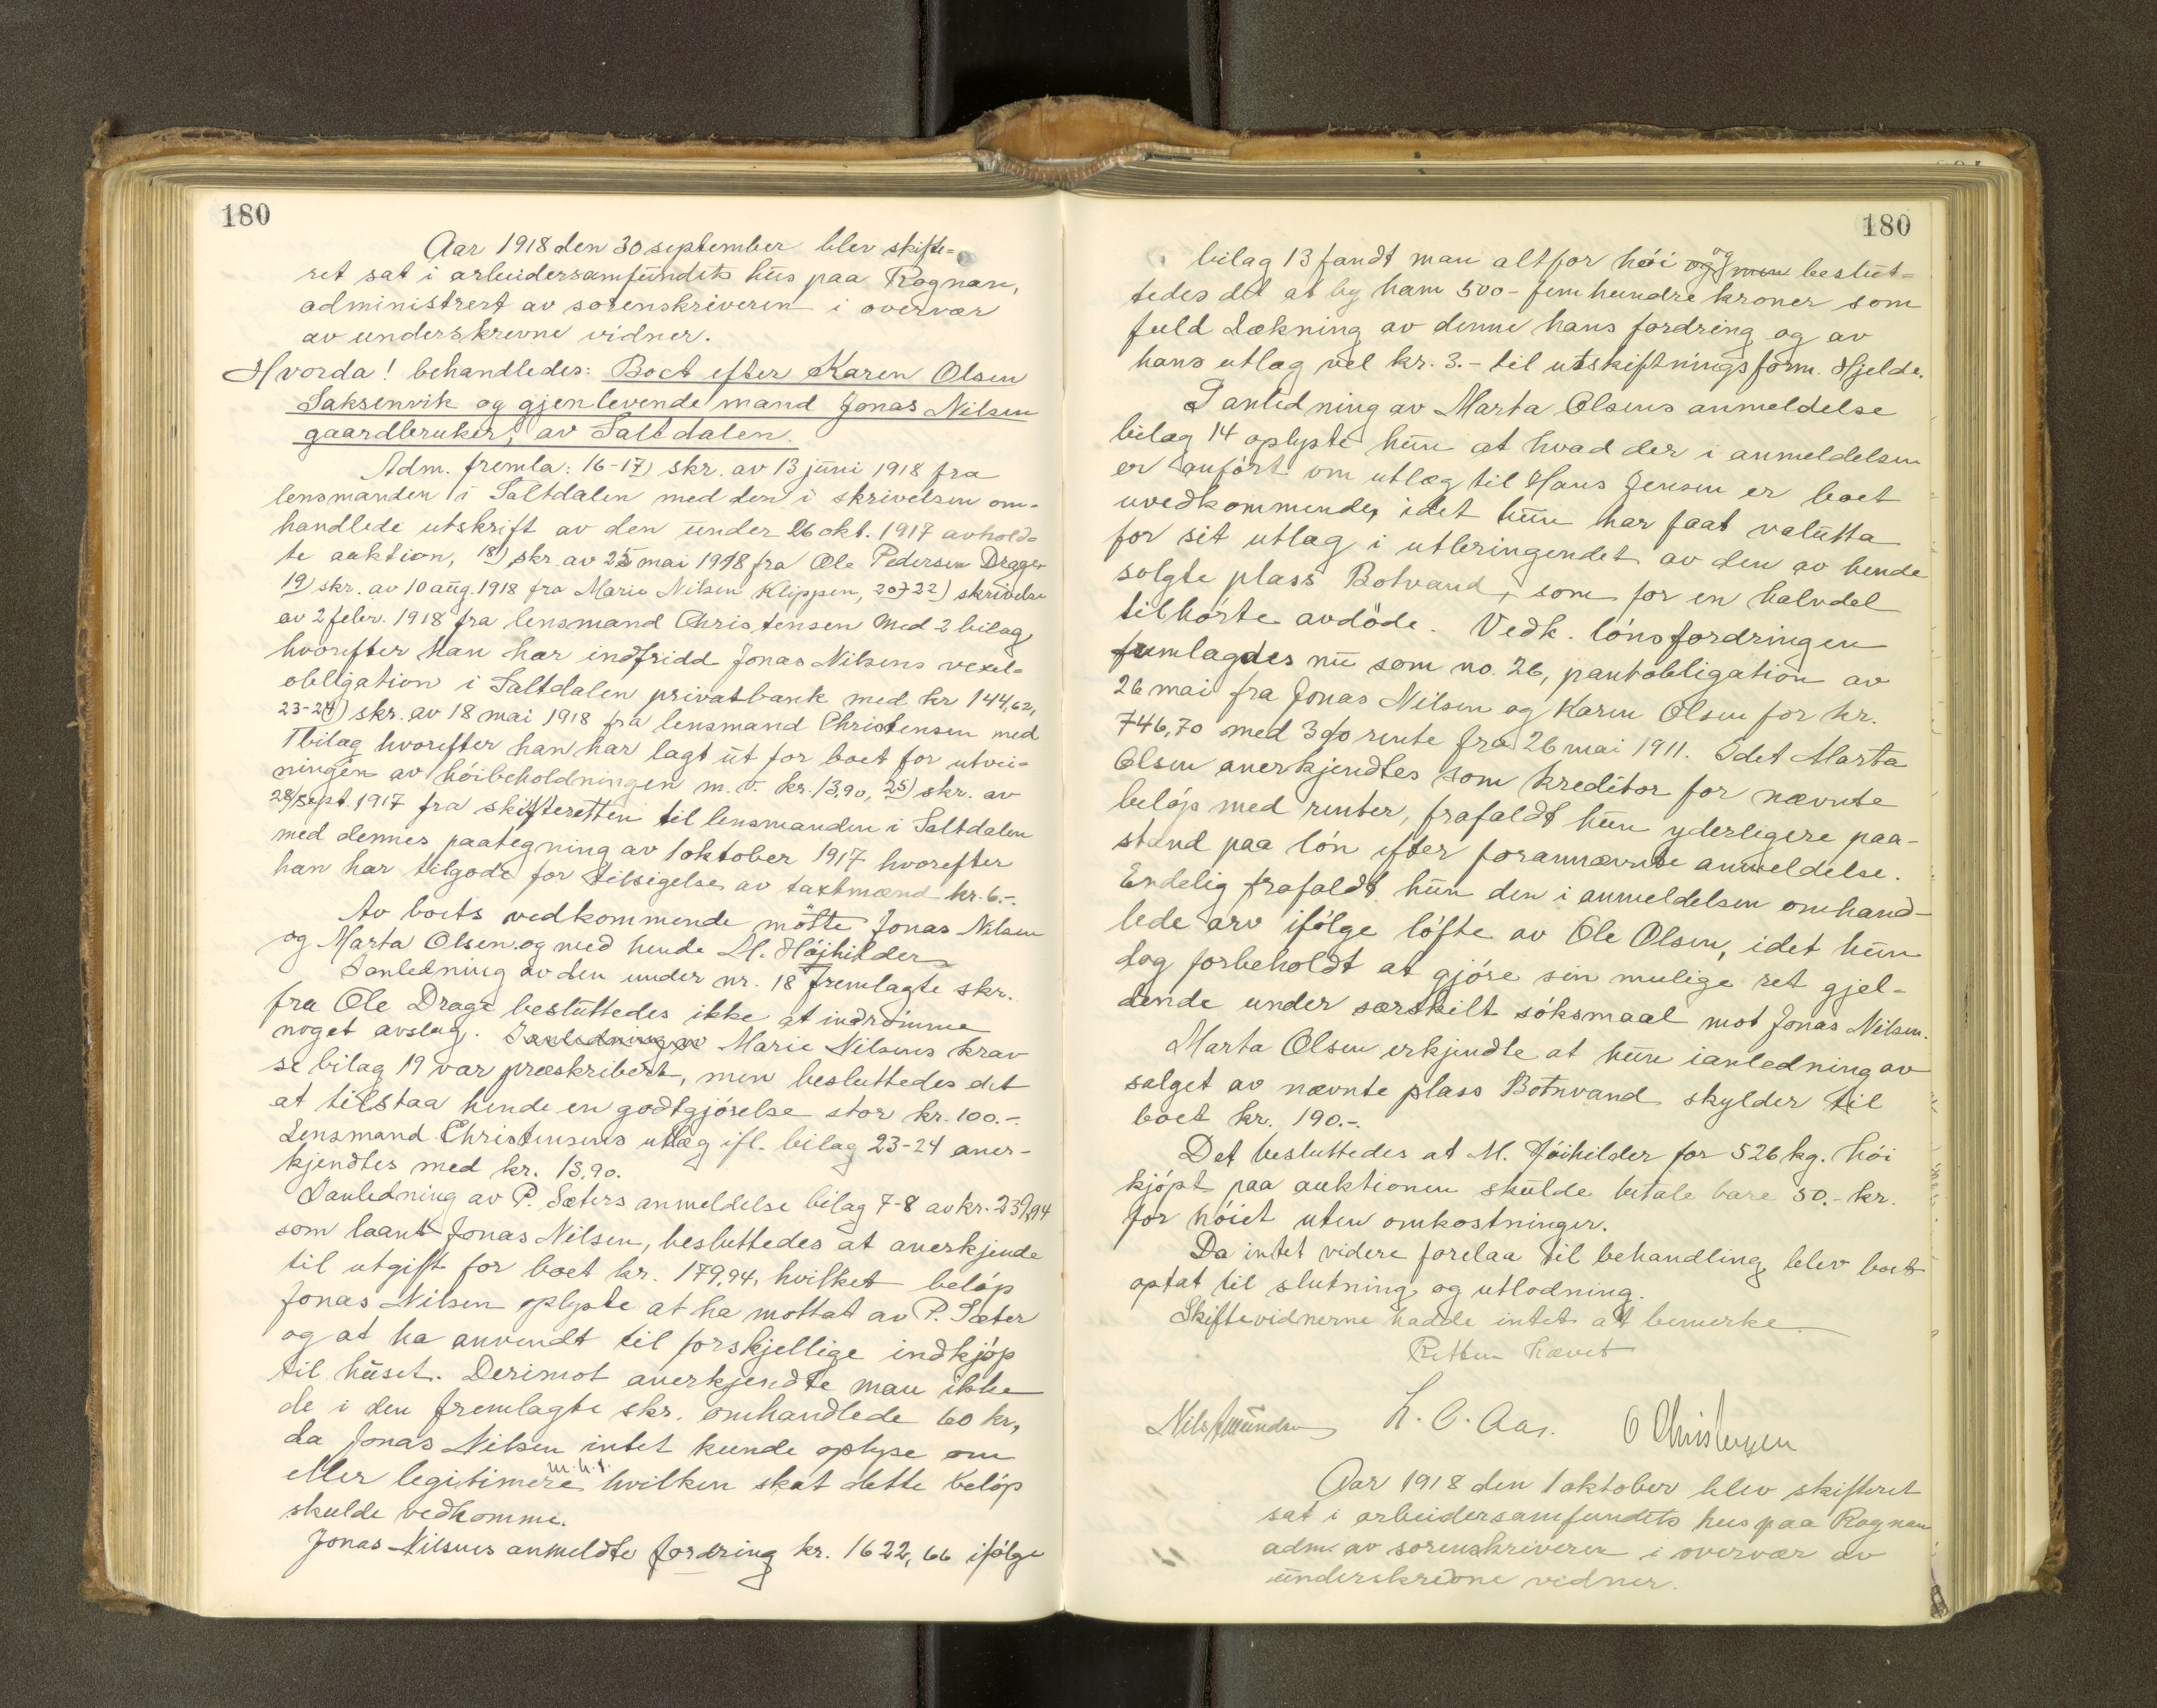 180
Aar 1918 den 30 september blev skifte-
ret sat i arbeidersamfundets hus paa Rognan,
administrert av sorenskriveren i overvær
av underskrevne vidner.
Hvorda! behandledes: Boet efter Karen Olsen
Saksenvik og gjenlevende mand Jonas Nilsen
gaardbruker, av Saltdalen.
Adm. fremla: 16-17) skr. av 13 juni 1918 fra
lensmanden i Saltdalen med den i skrivelsen om-
handlede utskrift av den under 26 okt. 1917 avhold-
te auktion, 18) skr. av 25 mai 1918 fra Ole Pedersen Drage,
19) skr. av 10 aug. 1918 fra Marie Nilsen Klippen, 20-22) skrivelse
av 2 febr. 1918 fra lensmand Christensen med 2 bilag,
hvorefter han har indfridd Jonas Nilsens vexel-
obligation i Saltdalen privatbank med kr 144,62,
23-24) skr. av 18 mai 1918 fra lensmand Christensen med
1 bilag hvorefter han har lagt ut for boet for utvei-
ningen av höibeholdningen m. v. kr. 13,90, 25) skr. av
28/sept. 1917 fra skifteretten til lensmanden i Saltdalen
med dennes paategning av 1 oktober 1917 hvorefter
han har tilgode for tilsigelse av taxtmænd kr. 6.-.
Av boets vedkommende mötte Jonas Nilsen
og Marta Olsen og med hende M. Höjhilder
I anledning av den under nr. 18 fremlagte skr.
fra Ole Drage besluttedes ikke at indrömme
noget avslag. I anledning av Marie Nilsens krav
se bilag 19 var præskribert, men besluttedes det
at tilstaa hende en godtgjörelse stor kr. 100.-.
Lensmand Christensens utlæg ifl. bilag 23-24 aner-
kjendtes med kr. 13,90.
I anledning av P. Sæters anmeldelse bilag 7-8 av kr. 239,94
som laant Jonas Nilsen, besluttedes at anerkjende
til utgift for boet kr. 179,94, hvilket belöp
Jonas Nilsen oplyste at ha mottat av P. Sæter
og at ha anvendt til forskjellige indkjöp
til huset. Derimot anerkjendte man ikke
de i den fremlagte skr. omhandlede 60 kr,
da Jonas Nilsen intet kunde oplyse om
eller legitimere m.h.t. hvilken skat dette belöp
skulde vedkomme.
Jonas Nilsens anmeldte fordring kr. 1622,66 ifölge
180
bilag 13 fandt man altfor höi og men og beslut-
tedes det at by ham 500- fem hundre kroner som
fuld dækning av denne hans fordring og av
hans utlæg vel kr. 3.- til utskiftningsform. Hjelde.
I anledning av Marta Olsens anmeldelse
bilag 14 oplyste hun at hvad der i anmeldelsen
er anfört om utlæg til Hans Jensen er boet
uvedkommende, idet hun har faat valutta
for sit utlæg i utbringendet av den av hende
solgte plass Botvand, som for en halvdel
tilhörte avdöde. Vedk. lönsfordringen
fremlagdes nu som no. 26, pantobligation av
26 mai fra Jonas Nilsen og Karen Olsen for kr.
746,70 med 3 % rente fra 26 mai 1911. Idet Marta
Olsen anerkjendtes som kreditor for nævnte
belöp med renter, frafaldt hun yderligere paa-
stand paa lön efter forannævnte anmeldelse.
Endelig frafaldt hun den i anmeldelsen omhand-
lede arv ifölge löfte av Ole Olsen, idet hun
dog forbeholdt at gjöre sin mulige ret gjel-
dende under særskilt söksmaal mot Jonas Nilsen.
Marta Olsen erkjendte at hun i anledning av
salget av nævnte plass Botnvand skylder til
boet kr. 190.-.
Det besluttedes at M. Höihilder for 526 kg. höi
kjöpt paa auktionen skulde betale bare 50.- kr.
for höiet uten omkostninger.
Da intet videre forelaa til behandling blev boet
optat til slutning og utlodning.
Skiftevidnerne hadde intet at bemerke.
Retten hævet
Nils Amundsen H. C. Aas. O Christensen
Aar 1918 den 1 oktober blev skifteret
sat i arbeidersamfundets hus paa Rognan
adm. av sorenskriveren i overvær av
underskrevne vidner.